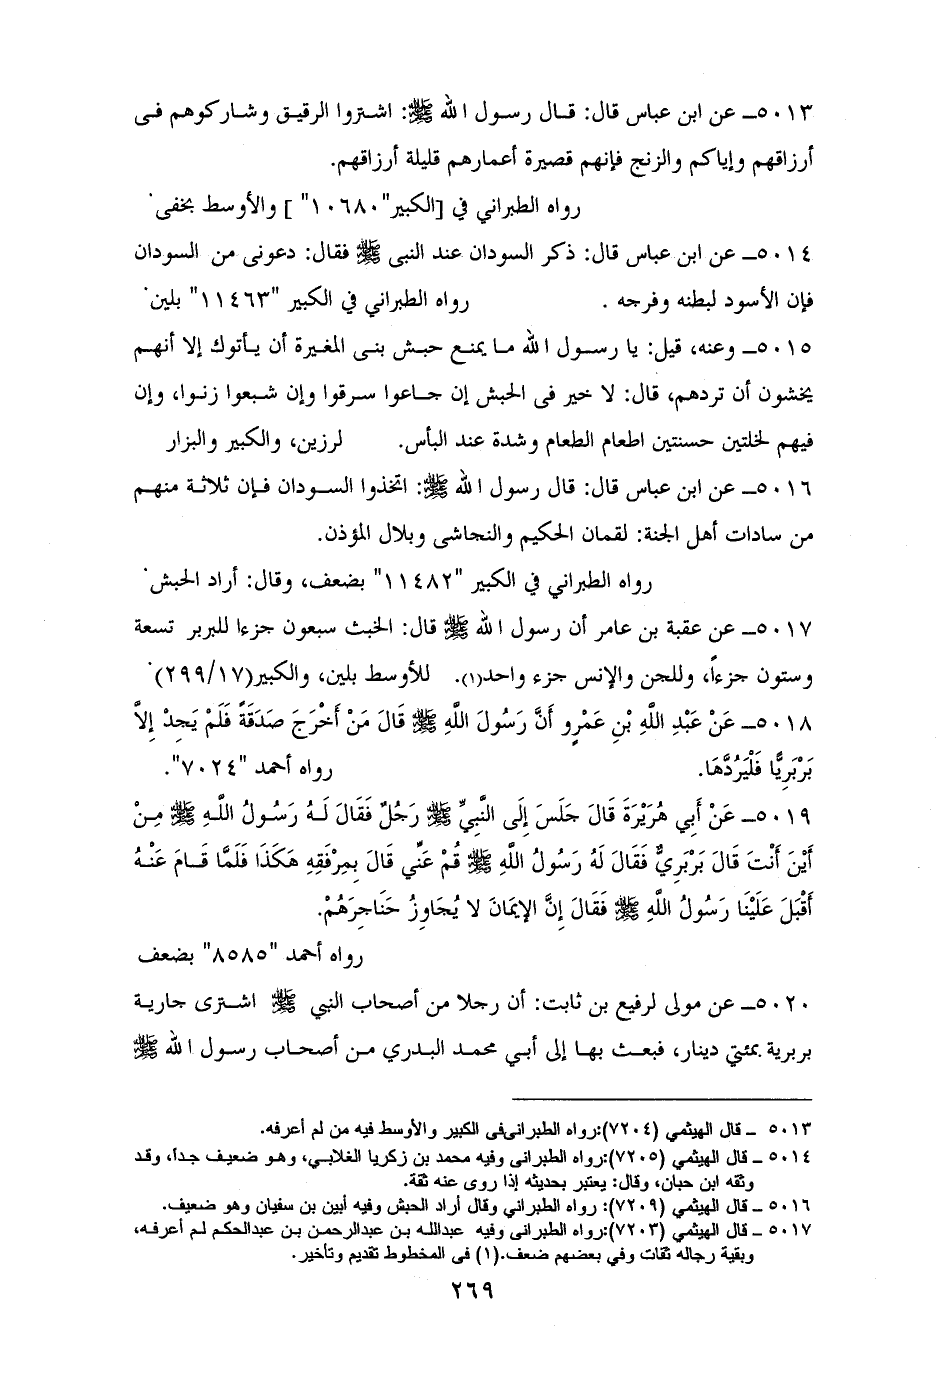 ٥٠١٣ـ عن ابن عباس قال: قال رسول الله ﷺ: اشتروا الرقيق وشاركوهم فى
أرزاقهم وإياكم والزنج فإنهم قصيرة أعمارهم قليلة أرزاقهم.
رواه الطبراني في [الكبير"١٠٦٨٠" ] والأوسط بخفى˙
٥٠١٤ـ عن ابن عباس قال: ذكر السودان عند النبى ﷺ فقال: دعونى من السودان
فإن الأسود لبطنه وفرجه . رواه الطبراني في الكبير "١١٤٦٣" بلين˙
٥٠١٥ـ وعنه، قيل: يا رسول الله ما يمنع حبش بنى المغيرة أن يأتوك إلا أنهم
يخشون أن تردهم، قال: لا خير فى الحبش إن جاعوا سرقوا وإن شبعوا زنوا، وإن
فيهم لخلتين حسنتين اطعام الطعام وشدة عند البأس. لرزين، والكبير والبزار
٥٠١٦ـ عن ابن عباس قال: قال رسول الله ﷺ: اتخذوا السودان فإن ثلاثة منهم
من سادات أهل الجنة: لقمان الحكيم والنجاشى وبلال المؤذن.
رواه الطبراني في الكبير "١١٤٨٢" بضعف، وقال: أراد الحبش˙
٥٠١٧ـ عن عقبة بن عامر أن رسول الله ﷺ قال: الخبث سبعون جزءا للبربر تسعة
وستون جزءاً، وللجن والإنس جزء واحد(١). للأوسط بلين، والكبير(٢٩٩/١٧)˙
٥٠١٨ـ عَنْ عَبْدِ اللَّهِ بْنِ عَمْرٍو أَنَّ رَسُولَ اللَّهِ ﷺ قَالَ مَنْ أَخْرَجَ صَدَقَةً فَلَمْ يَجِدْ إِلاَّ
بَرْبَرِيًّا فَلْيَرُدَّهَا. رواه أحمد "٧٠٢٤".
٥٠١٩ـ عَنْ أَبِي هُرَيْرَةَ قَالَ جَلَسَ إِلَى النَّبِيِّ ﷺ رَجُلٌ فَقَالَ لَهُ رَسُولُ اللَّهِ ﷺ مِنْ
أَيْنَ أَنْتَ قَالَ بَرْبَرِيٌّ فَقَالَ لَهُ رَسُولُ اللَّهِ ﷺ قُمْ عَنِّي قَالَ بِمِرْفَقِهِ هَكَذَا فَلَمَّا قَامَ عَنْهُ
أَقْبَلَ عَلَيْنَا رَسُولُ اللَّهِ ﷺ فَقَالَ إِنَّ الإِيمَانَ لا يُجَاوِزُ حَنَاجِرَهُمْ.
رواه أحمد "٨٥٨٥" بضعف
٥٠٢٠ـ عن مولى لرفيع بن ثابت: أن رجلا من أصحاب النبي ﷺ اشترى جارية
بربرية بمئتي دينار، فبعث بها إلى أبي محمد البدري من أصحاب رسول الله ﷺ
٥٠١٣ ـ قال الهيثمي (٧٢٠٤):رواه الطبرانى فى الكبير والأوسط فيه من لم أعرفه.
٥٠١٤ ـ قال الهيثمي (٧٢٠٥):رواه الطبرانى وفيه محمد بن زكريا الغلابي، وهو ضعيف جداً، وقد
وثقه ابن حبان، وقال: يعتبر بحديثه إذا روى عنه ثقة.
٥٠١٦ ـ قال الهيثمي (٧٢٠٩): رواه الطبراني وقال أراد الحبش وفيه أبين بن سفيان وهو ضعيف.
٥٠١٧ ـ قال الهيثمي (٧٢٠٣):رواه الطبرانى وفيه عبدالله بن عبدالرحمن بن عبدالحكم لم أعرفه،
وبقية رجاله ثقات وفي بعضهم ضعف.(١) فى المخطوط تقديم وتأخير.
٢٦٩